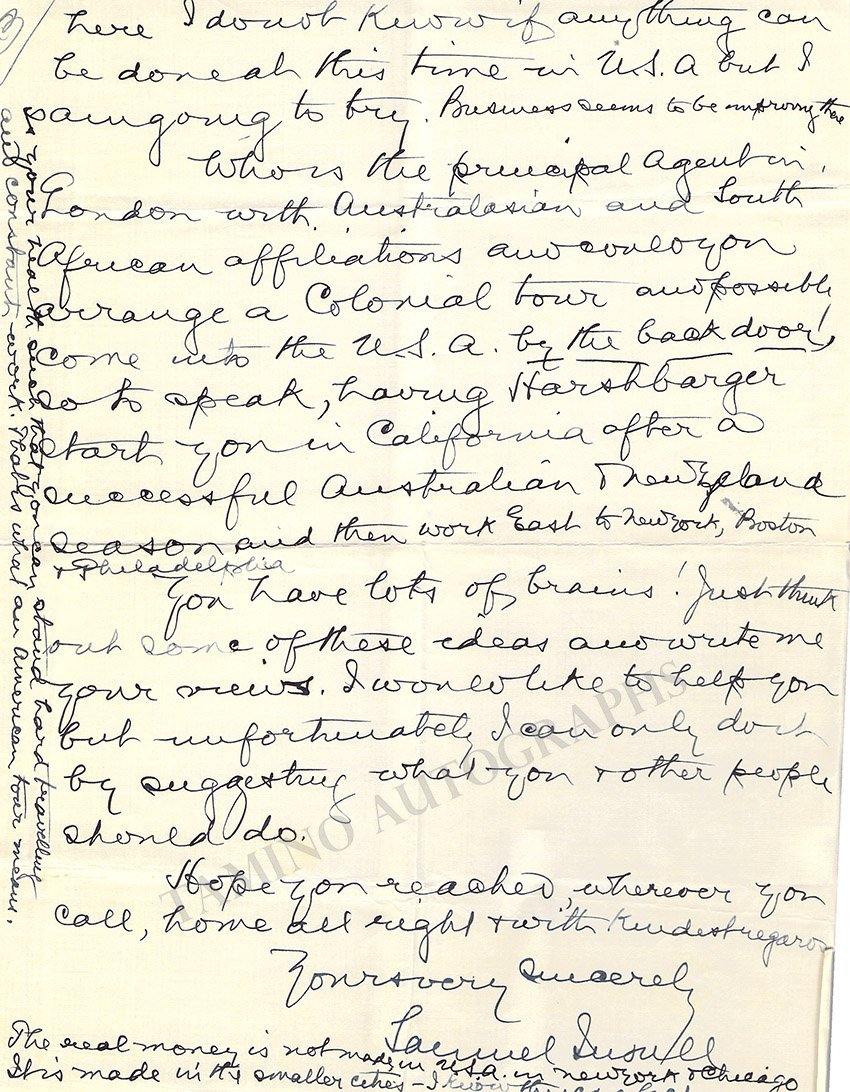 here I do not know if anything can
be done at this time in U.S.A but I
am going to try. Business seems to be improving there
Who is the principal Agent in
London with Australasian and South
African affiliations and could you
arrange a Colonial tour and possible
come into the U.S.A. by the back door!,
so to speak, having Harshbarger
start you in California after a
successful Australian & New Zealand
season and then work East to New York, Boston
& Philadelphia
You have lots of brains! Just think
out some of these ideas and write me
your views. I would like to help you
but unfortunately I can only do it
by suggesting what you & other people
should do.
Hope you reached, wherever you
call, home all right & with kindest regards
Yours very sincerely
Samuel Insull
The real money is not made in U.S.A. in New York & Chicago
It is made in the smaller cities - I know this
Is your health such that you can stand hard travelling
and constant work. That is what an American tour means.
TAMINO AUTOGRAPHS